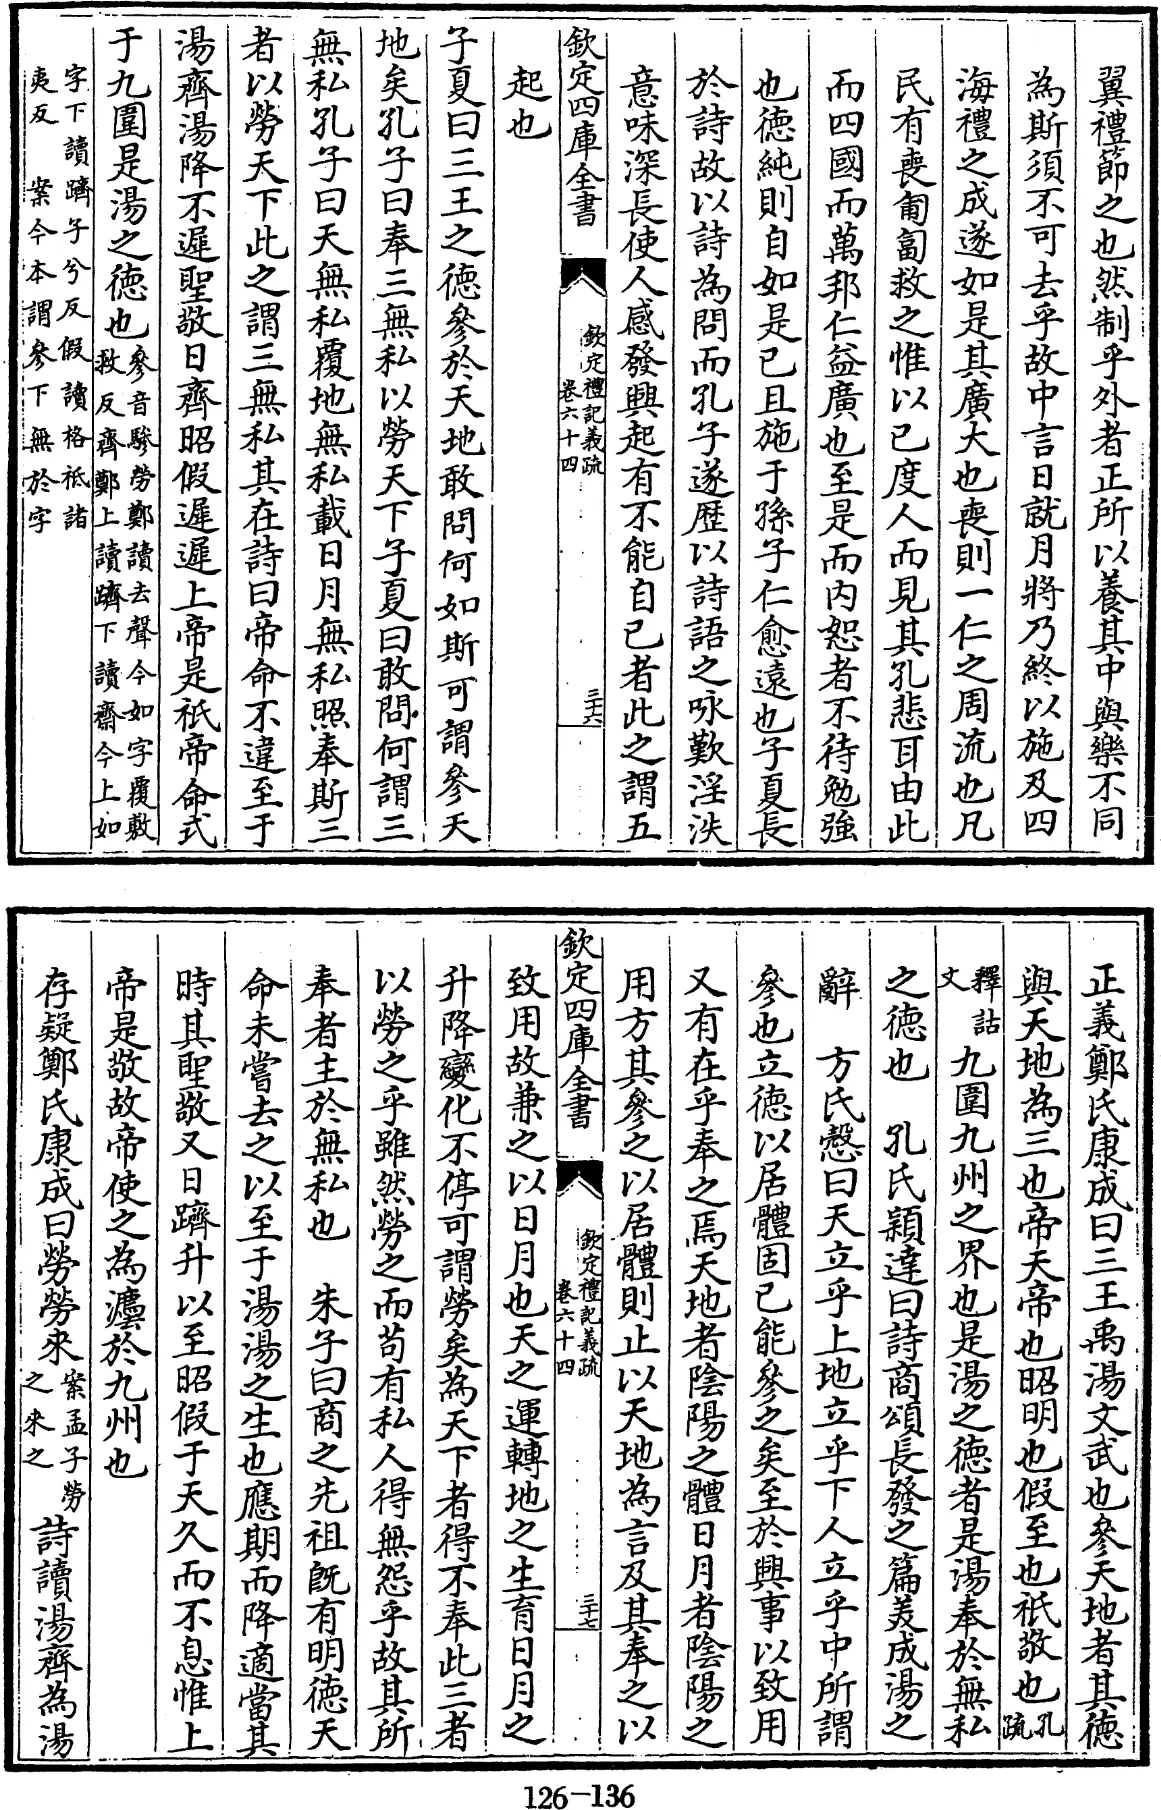 翼禮節之也然制乎外者正所以養其中與樂不同
為斯須不可去乎故中言日就月將乃終以施及四
海禮之成遂如是其廣大也喪則一仁之周流也凡
民有喪匍匐救之惟以已度人而見其孔悲耳由此
而四國而萬邦仁益廣也至是而内恕者不待勉強
也德純則自如是已且施于孫子仁愈遠也子夏長
於詩故以詩為問而孔子遂歷以詩語之咏歎淫泆
意味深長使人感發興起有不能自已者此之謂五
欽定四庫全書
欽定禮記義疏
卷六十四
三十六
起也
子夏曰三王之德參於天地敢問何如斯可謂參天
地矣孔子曰奉三無私以勞天下子夏曰敢問何謂三
無私孔子曰天無私覆地無私載日月無私照奉斯三
者以勞天下此之謂三無私其在詩曰帝命不違至于
湯齊湯降不遲聖敬日齊昭假遲遲上帝是祇帝命式
于九圍是湯之德也參音驂勞鄭讀去聲今如字覆敷
救反齊鄭上讀躋下讀齋今上如
字下讀躋子兮反假讀格祇諸
夷反　案今本謂參下無於字
正義鄭氏康成曰三王禹湯文武也參天地者其德
與天地為三也帝天帝也昭明也假至也祇敬也孔疏
釋詁文九圍九州之界也是湯之德者是湯奉於無私
之德也　孔氏穎達曰詩商頌長發之篇美成湯之
辭　方氏慤曰天立乎上地立乎下人立乎中所謂
參也立德以居體固已能參之矣至於興事以致用
又有在乎奉之焉天地者陰陽之體日月者陰陽之
用方其參之以居體則止以天地為言及其奉之以
欽定四庫全書
欽定禮記義疏
卷六十四
三十七
致用故兼之以日月也天之運轉地之生育日月之
升降變化不停可謂勞矣為天下者得不奉此三者
以勞之乎雖然勞之而苟有私人得無怨乎故其所
奉者主於無私也　朱子曰商之先祖既有明德天
命未嘗去之以至于湯湯之生也應期而降適當其
時其聖敬又日躋升以至昭假于天久而不息惟上
帝是敬故帝使之為灋於九州也
存疑鄭氏康成曰勞勞來案孟子勞之來之詩讀湯齊為湯
126-136